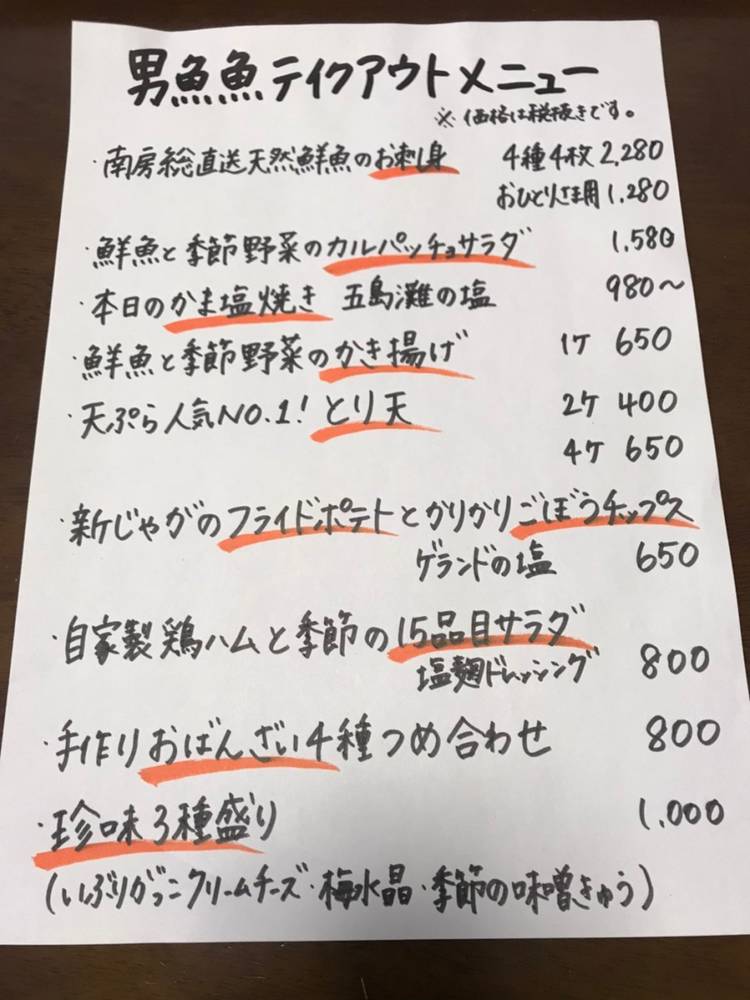 男魚魚テイクアウトメニュー
※価格は税抜きです。
・南房総直送天然鮮魚のお刺身 4種4枚 2,280
おひとりさま用 1,280
・鮮魚と季節野菜のカルパッチョサラダ 1,580
・本日のかま塩焼き 五島灘の塩 980〜
・鮮魚と季節野菜のかき揚げ 1ケ 650
・天ぷら人気NO.1!とり天 2ケ 400
4ケ 650
・新じゃがのフライドポテトとかりかりごぼうチップス
ゲランドの塩 650
・自家製鶏ハムと季節の15品目サラダ
塩麹ドレッシング 800
・手作りおばんざい4種つめ合わせ 800
・珍味3種盛り 1,000
(いぶりがっこクリームチーズ・梅水晶・季節の味噌きゅう)